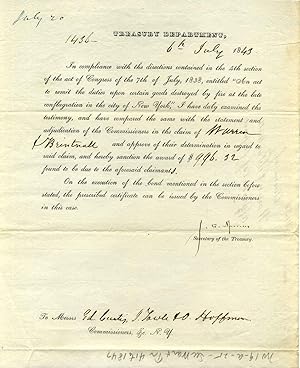 July 20
TREASURY DEPARTMENT,
1436
6th July 1843
In compliance with the directions contained in the 5th section
of the act of Congress of the 7th of July, 1838, entitled "An act
to remit the duties upon certain goods destroyed by fire at the late
conflagration in the city of New York," I have duly examined the
testimony, and have compared the same with the statement and
adjudication of the Commissioners in the claim of Warren
& Brintnall and approve of their determination in regard to
said claim, and hereby sanction the award of $996.32
found to be due to the aforesaid claimants.
On the execution of the bond mentioned in the section before
stated, the prescribed certificate can be issued by the Commissioners
in this case.
Secretary of the Treasury.
To Messrs Ed Curtis, & O Hoffman
Commissioners, &c N.Y